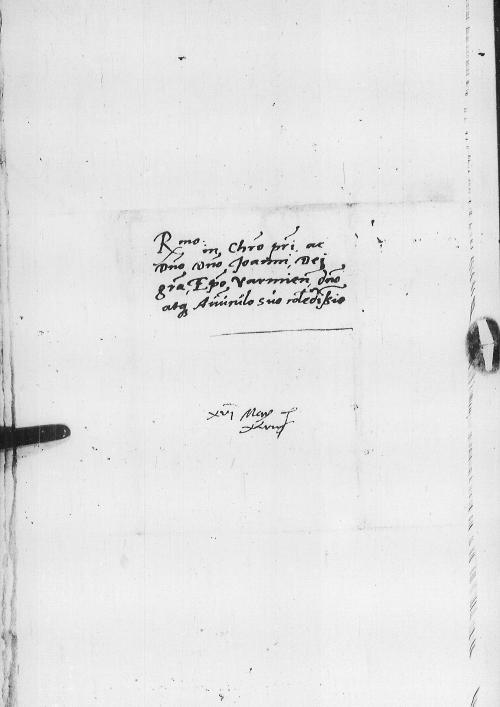 Rmo in Chro pri ac
Dno Dno Joanni Dei
gra Epo Varmien dno
atq Avunculo suo
XVI May